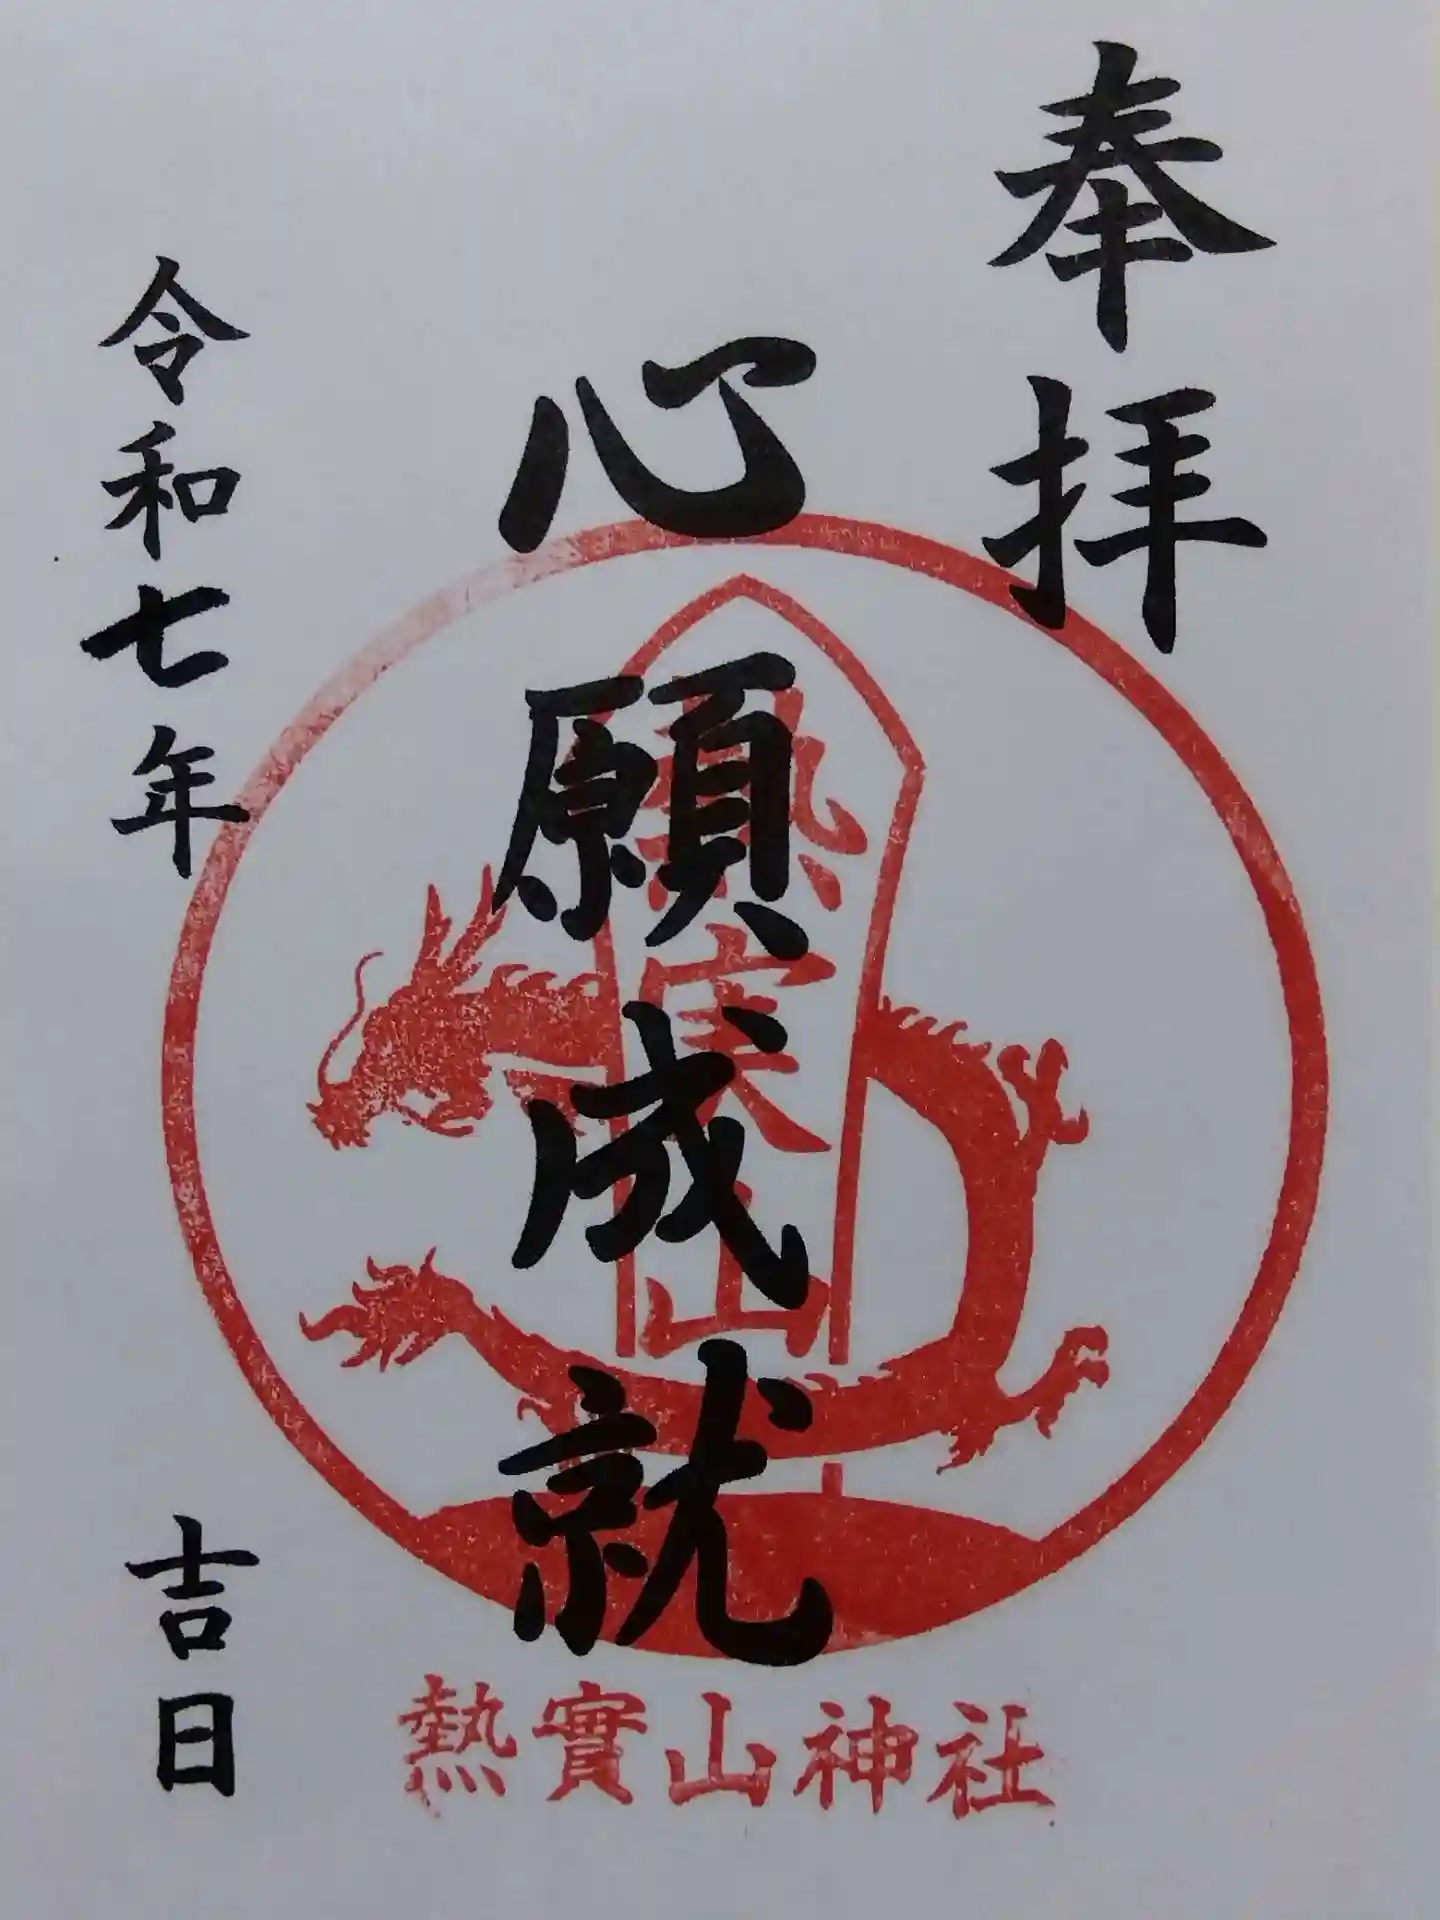 奉拝
心願成就
熱実山
令和七年 吉日
熱實山神社